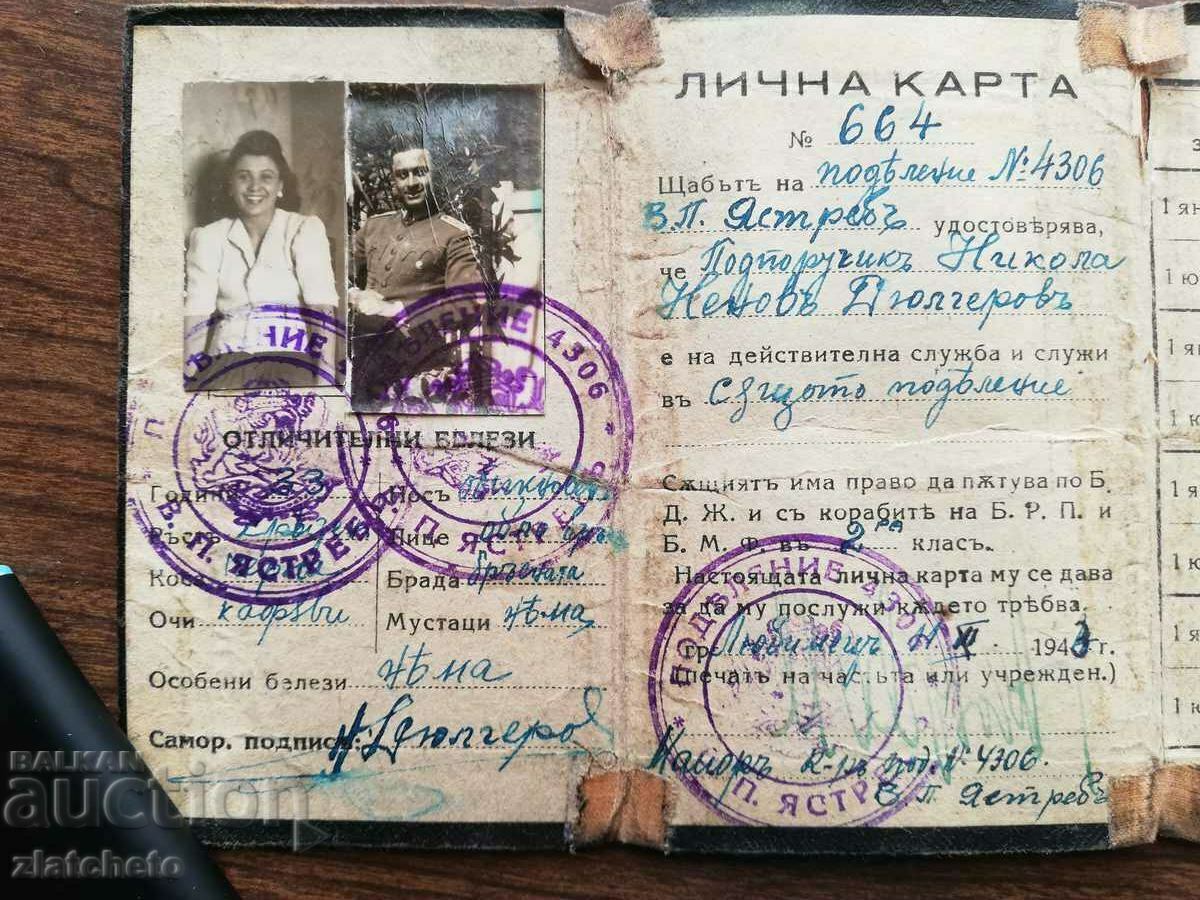 ОТЛИЧИТЕЛНИ БЕЛЕЗИ
Години 33
Ръстъ
Коса
Очи кафяви
Носъ
Лице
Брада
Мустаци нѣма
Особени белези нѣма
Самор. подписъ: Н. Дюлгеровъ
ЛИЧНА КАРТА
№ 664
Щабътъ на подѣление №: 4306
В.П. Ястребъ удостовѣрява,
че Подпоручикъ Никола
Неновъ Дюлгеровъ
е на действителна служба и служи
въ сѫщото подѣление
Сѫщиятъ има право да пѫтува по Б.
Д. Ж. и съ корабитѣ на Б. Р. П. и
Б. М. Ф. въ 2ра класъ.
Настоящата лична карта му се дава
за да му послужи кѫдето трѣбва.
гр. Любимецъ XI. 1943 г.
(Печатъ на частьта или учрежден.)
Майоръ К-ръ под. №: 4306.
В.П. Ястребъ
ПОДѢЛЕНИЕ 4306 * В. П. ЯСТРЕБЪ *
ПОДѢЛЕНИЕ 4306 * В. П. ЯСТРЕБЪ *
ПОДѢЛЕНИЕ 4306 * В. П. ЯСТРЕБЪ *
1 ян
1 ю
1 ян
1 ю
1 я
1 ю
1 я
1 ю
BALKAN
auction
zlatcheto